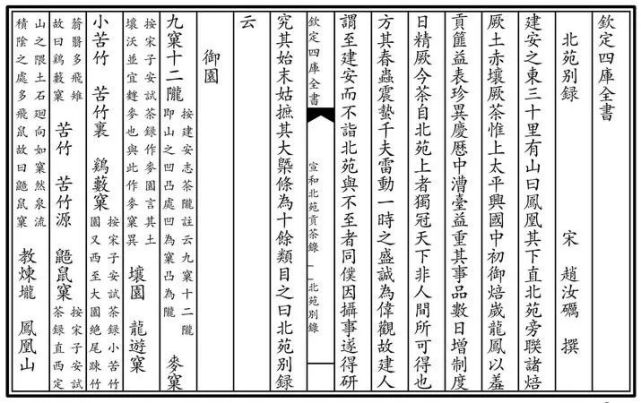 欽定四庫全書
北苑别錄
宋 趙汝礪 撰
建安之東三十里有山曰鳳凰其下直北苑旁聯諸焙
厥土赤壤厥茶惟上上太平興國中初御焙歲龍鳳以羞
貢篚益表珍異慶歷中漕臺益重其事品數日增制度
日精厥今茶自北苑上者獨冠天下非人間所可得也
方其春蟲震蟄千夫雷動一時之盛誠為偉觀故建人
謂至建安而不詣北苑與不至者同僕因攝事遂得研
究其始末姑摭其大槩條為十餘類目之曰北苑别錄
云
欽定四庫全書
宣和北苑貢茶錄 北苑别錄
御園
九窠十二隴
按建安志茶隴註云九窠十二隴
即山之凹凸處凹為窠凸為隴
麥窠
按宋子安試茶錄作麥園言其土
壤沃並宜麰麥也與此作麥窠異
壤園 龍遊窠
小苦竹 苦竹裏 鷄藪窠
按宋子安試茶錄小苦竹
園又西至大園絶尾踈竹
蓊翳多飛雉
故曰鷄藪窠
苦竹 苦竹源 鼯鼠窠
按宋子安試
茶錄直西定
山之隈土石迴向如窠然泉流
積陰之處多飛鼠故曰鼯鼠窠
教煉壠 鳳凰山